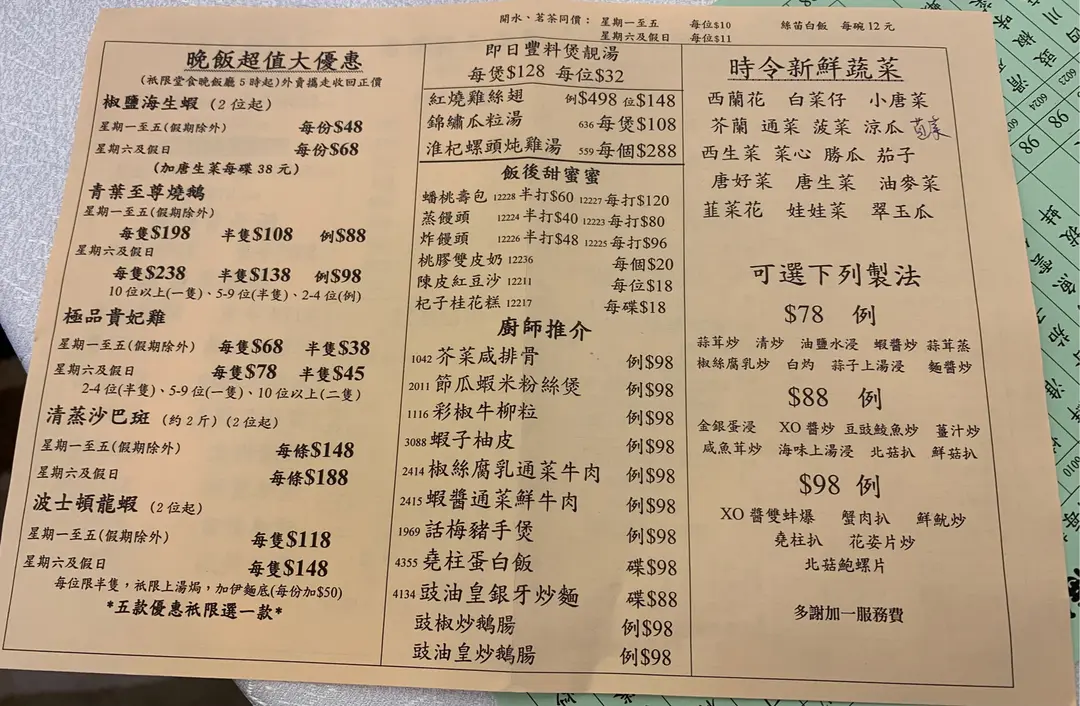 開水、茗茶同價： 星期一至五 每位$10 絲苗白飯 每碗12元
星期六及假日 每位$11
晚飯超值大優惠
(祇限堂食晚飯廳5時起)外賣攜走收回正價
椒鹽海生蝦 (2位起)
星期一至五(假期除外) 每份$48
星期六及假日 每份$68
(加唐生菜每碟38元)
青葉至尊燒鵝
星期一至五(假期除外)
每隻$198 半隻$108 例$88
星期六及假日
每隻$238 半隻$138 例$98
10位以上(一隻)、5-9位(半隻)、2-4位(例)
極品貴妃雞
星期一至五(假期除外) 每隻$68 半隻$38
星期六及假日 每隻$78 半隻$45
2-4位(半隻)、5-9位(一隻)、10位以上(二隻)
清蒸沙巴斑 (約2斤)(2位起)
星期一至五(假期除外) 每條$148
星期六及假日 每條$188
波士頓龍蝦 (2位起)
星期一至五(假期除外) 每隻$118
星期六及假日 每隻$148
每位限半隻，祇限上湯焗，加伊麵底(每份加$50)
*五款優惠祇限選一款*
即日豐料煲靚湯
每煲$128 每位$32
紅燒雞絲翅 例$498 位$148
錦繡瓜粒湯 636 每煲$108
淮杞螺頭炖雞湯 559 每個$288
飯後甜蜜蜜
蟠桃壽包 12228 半打$60 12227 每打$120
蒸饅頭 12224 半打$40 12223 每打$80
炸饅頭 12226 半打$48 12225 每打$96
桃膠雙皮奶 12236 每個$20
陳皮紅豆沙 12211 每位$18
杞子桂花糕 12217 每碟$18
廚師推介
1042 芥菜咸排骨 例$98
2011 節瓜蝦米粉絲煲 例$98
1116 彩椒牛柳粒 例$98
3088 蝦子柚皮 例$98
2414 椒絲腐乳通菜牛肉 例$98
2415 蝦醬通菜鮮牛肉 例$98
1969 話梅豬手煲 例$98
4355 堯柱蛋白飯 碟$98
4134 豉油皇銀牙炒麵 碟$88
豉椒炒鵝腸 例$98
豉油皇炒鵝腸 例$98
時令新鮮蔬菜
西蘭花 白菜仔 小唐菜
芥蘭 通菜 菠菜 涼瓜
西生菜 菜心 勝瓜 茄子
唐好菜 唐生菜 油麥菜
韮菜花 娃娃菜 翠玉瓜
可選下列製法
$78 例
蒜茸炒 清炒 油鹽水浸 蝦醬炒 蒜茸蒸
椒絲腐乳炒 白灼 蒜子上湯浸 麵醬炒
$88 例
金銀蛋浸 XO醬炒 豆豉鯪魚炒 薑汁炒
咸魚茸炒 海味上湯浸 北菇扒 鮮菇扒
$98 例
XO醬雙蚌爆 蟹肉扒 鮮魷炒
堯柱扒 花姿片炒
北菇鮑螺片
多謝加一服務費
6023
6024
98
98
6010